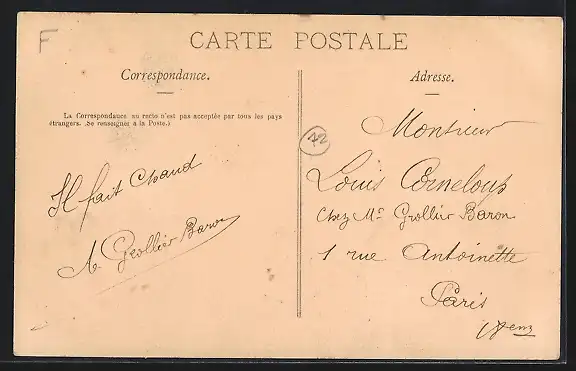 F
CARTE POSTALE
Correspondance.
La Correspondance au recto n'est pas acceptée par tous les pays
étrangers. (Se renseigner à la Poste.)
Il fait Chaud
A. Grollier Baron
Adresse.
42
Monsieur
Louis Corneloup
Chez Mr Grollier Baron
1 rue Antoinette
Paris